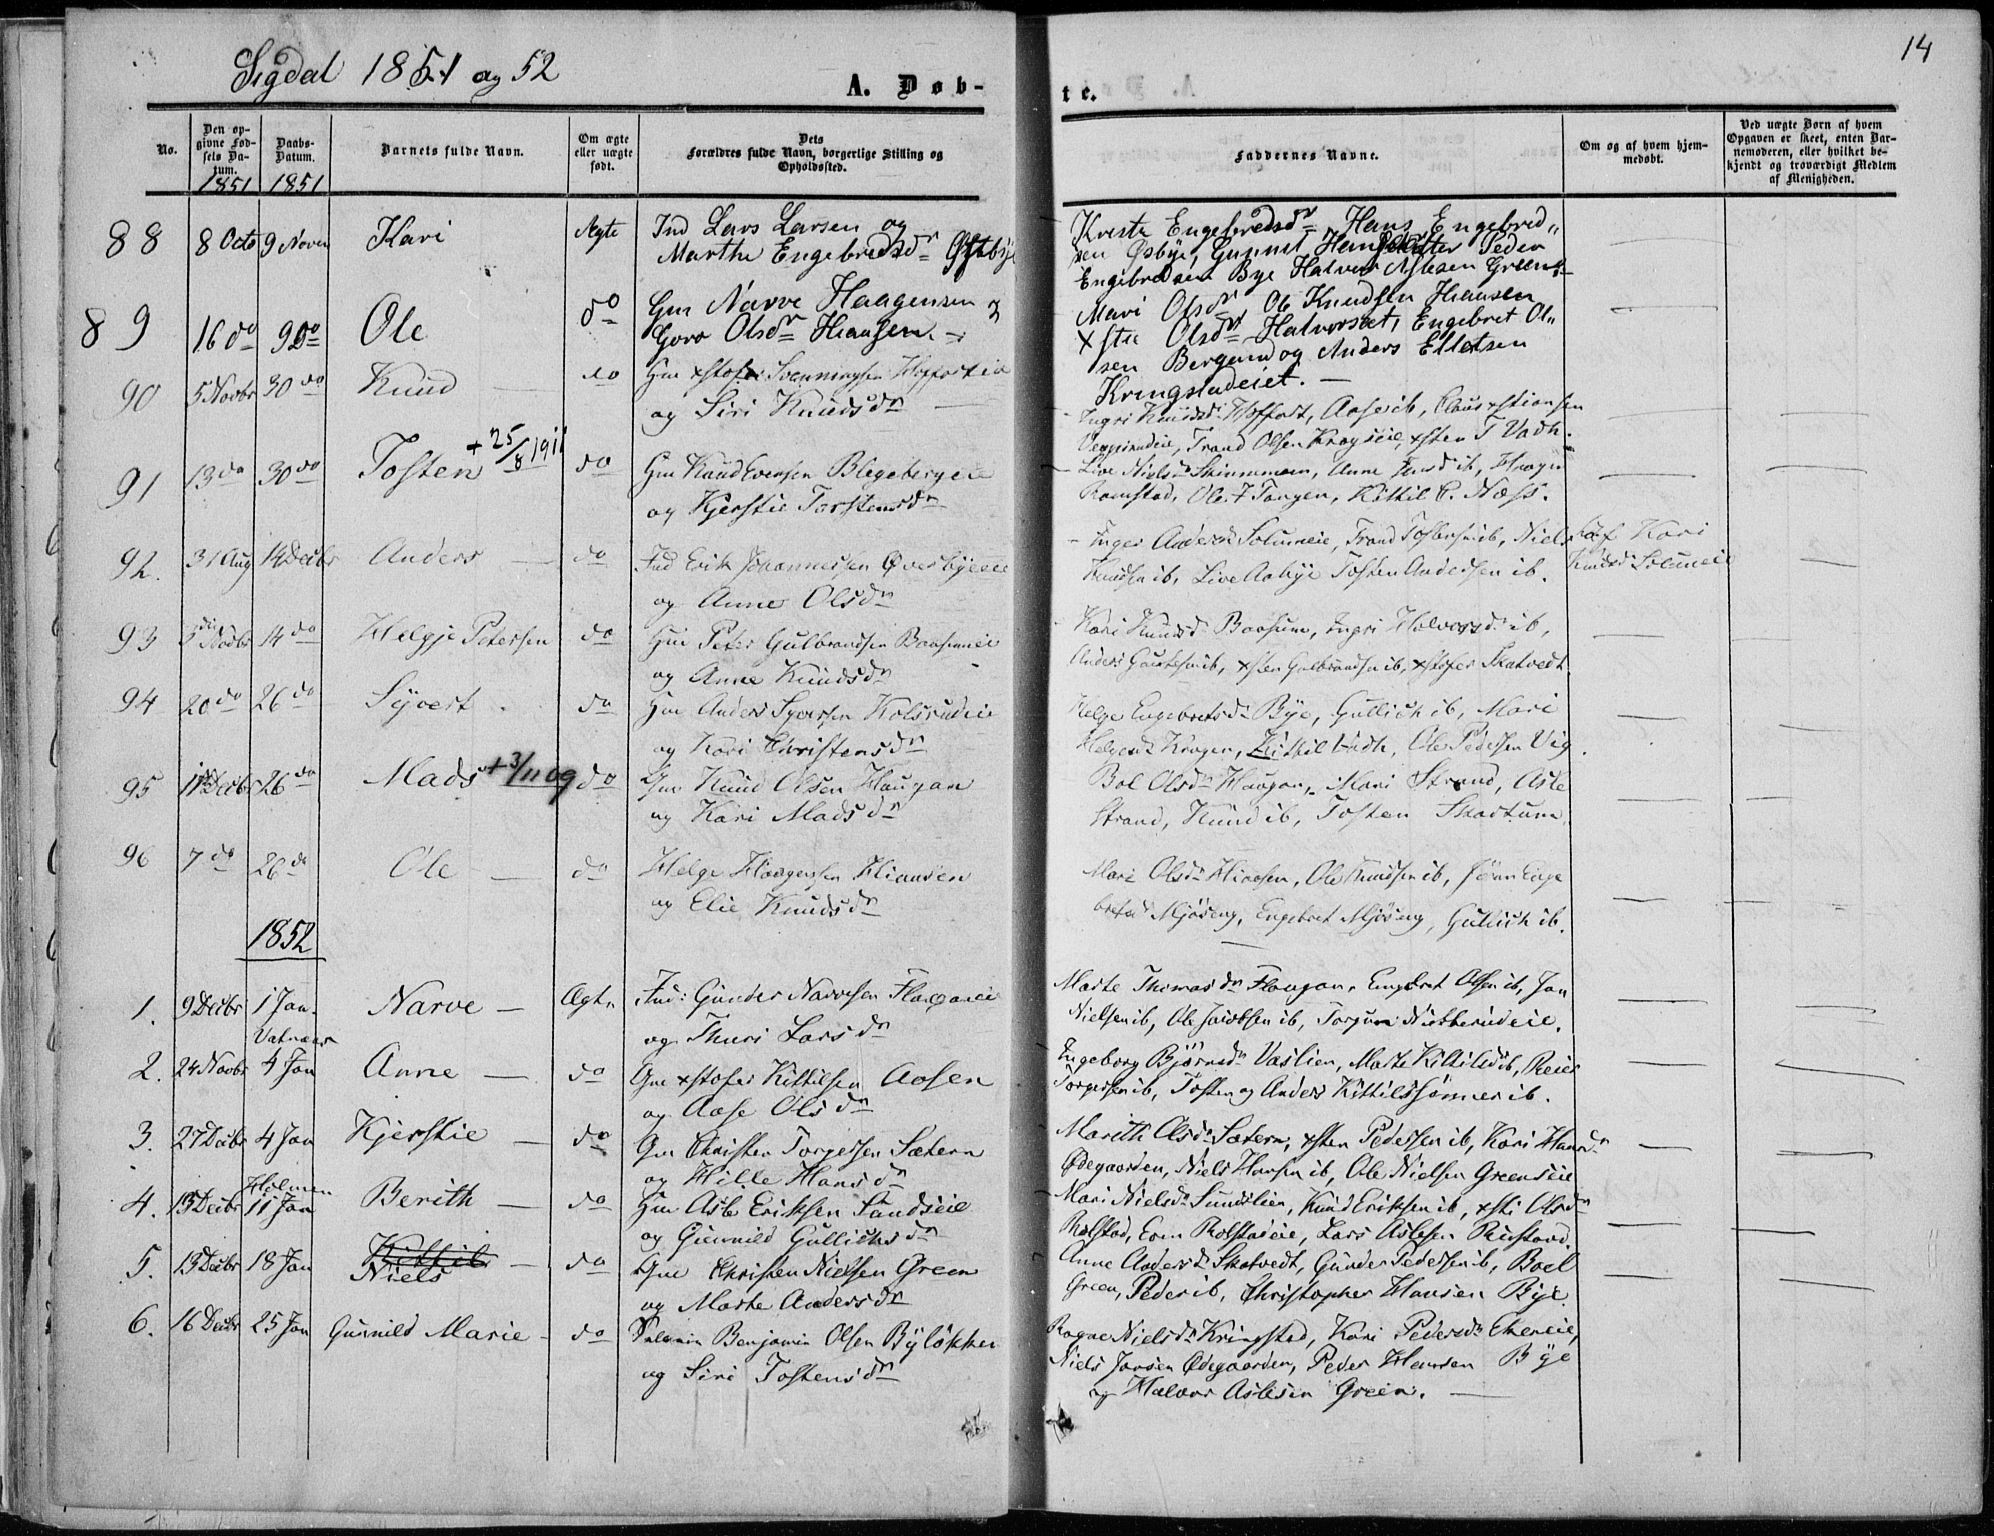 Sigdal 1851 og 52
A. Døb-
te.
14
No.
Den op-
givne Fød-
sels Da-
tum.
1851
Daabs-
Datum.
1851
Barnets fulde Navn.
Om ægte
eller uægte
født.
Dets
Forældres fulde Navn, borgerlige Stilling og
Opholdssted.
Faddernes Navne.
Om og af hvem hjem-
medøbt.
Ved uægte Børn af hvem
Opgaven er skeet, enten Bar-
nemoderen, eller hvilket be-
kjendt og troværdigt Medlem
af Menigheden.
88 8 Octo 9 Novem Kari Ægte Ind Lars Larsen og
Marthe Engebredsdr Østbye
Engebredsdr Hans Engebred-
sen Øsbye, Gunnil Peder
Engebredsen Bye Halvor Aslesen Green
89 16 do 9 do Ole do Gm Narve Haagensen og
Goro Olsdr Hiaasen.
Mari Olsdr Ole Knudsen Hiaasen
Olsdr Halvorseet, Engebret Ol-
sen Bergan og Anders Elletsen
Kringstadeiet.
90 5 Novbr 30 do Knud do Hm xstofer Svenningsen Hoffarteie
og Siri Knudsdr
Ingri Knudsdr Hoffart, Aase ib, Claus xstiansen
Trand Olsen xsten T Vadh.
91 13 do 30 do Tosten + 25/8 1911 do Gm Knud Evensen Blegebergeie
og Kjerstie Torstensdr
Live Nielsdr Skinnmoen, Anne ib, Haagn
Ramstad, Ole T Tangen, Kittil E. Næss.
92. 31 Aug 14 Decbr Anders do Ind Erik Johannessen Øvesbyeeie
og Anne Olsdr
Inger Andersdr Solumeie, Trond Tostensen ib, Niels
Knudsen ib, Live Aabye Tosten Andersen ib.
af Kari
Knudsdr Solumeie
93 3die Novbr 14 do Helgje Petersen do Hm Peter Gulbrandsen Baasumeie
og Anne Knudsdr
Kari Knudsdr Baasum, Ingri Halvorsdr ib,
Anders Gautesen ib, xsten Gulbrandsen ib, xstofer Skatvedt
94 20 do 26 do Syvert do Hm Anders Syversen Kolsrudeie
og Kari Christensdr
Helge Engebretsdr Bye, Gullich ib, Mari
Helgesdr Kragen, Kittil Vadh, Ole Pedersen Vig.
95 11 Decbr 26 do Mads + 3/11 09 do Gm Knud Olsen Haugan
og Kari Madsdr
Bol Olsdr Haugan, Mari Strand, Asle
Strand, Knud ib, Tosten Skartum.
96 7 do 26 do Ole do Helge Haagensen Hiaasen
og Elie Knudsdr
Mari Olsdr Hiaasen, Ole Knudsen ib, Jøran Enge
bretsdr Mjøseng, Engebret Mjøseng, Gullich ib.
1852
1. 9 Decbr 1 Jan. Narve Ægte Ind: Gunder Narvesen Hauganeie
og Thuri Larsdr
Marte Thomasdr Haugan, Engebret Olsen ib, Jon
Nielsen ib, Ole Jacobsen ib, Torgun Nubberudeie.
Vatnaas
2. 24 Novbr 4 Jan Anne do Gm xstofer Kittilsen Aasen
og Aase Olsdr
Ingeborg Bjørnsdr Vaslien, Marte Kittilsdr ib, Reier
Torgersen ib, Tosten og Anders Kittilssønner ib.
3. 27 Decbr 4 Jan Kjerstie do Gm Christen Torgersen Sætern
og Hille Hansdr
Marith Olsdr Sætern, xsten Pedersen ib, Kari Hansdr
Ødegaarden, Niels Hansen ib, Ole Nielsen Greenseie
Holmen
4. 15 Decbr 11 Jan Berith do Hm Asle Eriksen Sandseie
og Gunnild Gullichsdr
Mari Nielsdr Sundslien, Knud Eriksen ib, xsti Olsdr
Rolstad, Even Rolstadeie, Lars Aslesen Rustand.
5. 13 Decbr 18 Jan Kittil Niels do Gm Christen Nielsen Green
og Marte Andersdr
Anne Andersdr Skatvedt, Gunder Pedersen ib, Boel
Green, Peder ib, Christopher Hansen Bye.
6. 16 Decbr 25 Jan Gunnild Marie do Benjamin Olsen Byløkken
og Siri Tostensdr
Ragne Nielsdr Kringstad, Kari Pedersdr
Niels Jonsen Ødegaarden, Peder Hansen Bye
og Halvor Aslesen Green.